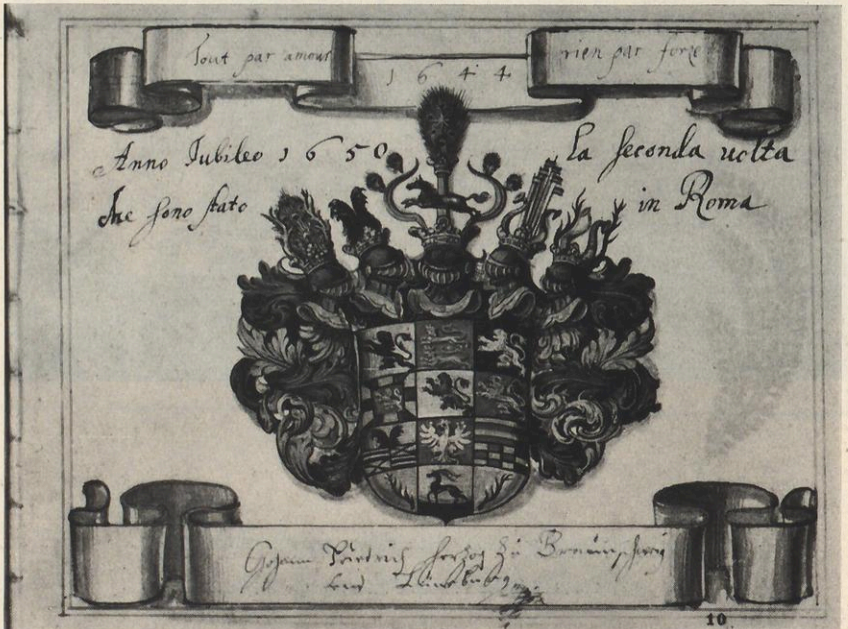 Tout par amour rien par force
1 6 4 4
Anno Jubileo 1 6 5 0 la seconda uolta
che sono stato in Roma
Johann Friedrich Herzog zu Braunschweig
und Lüneburg
10